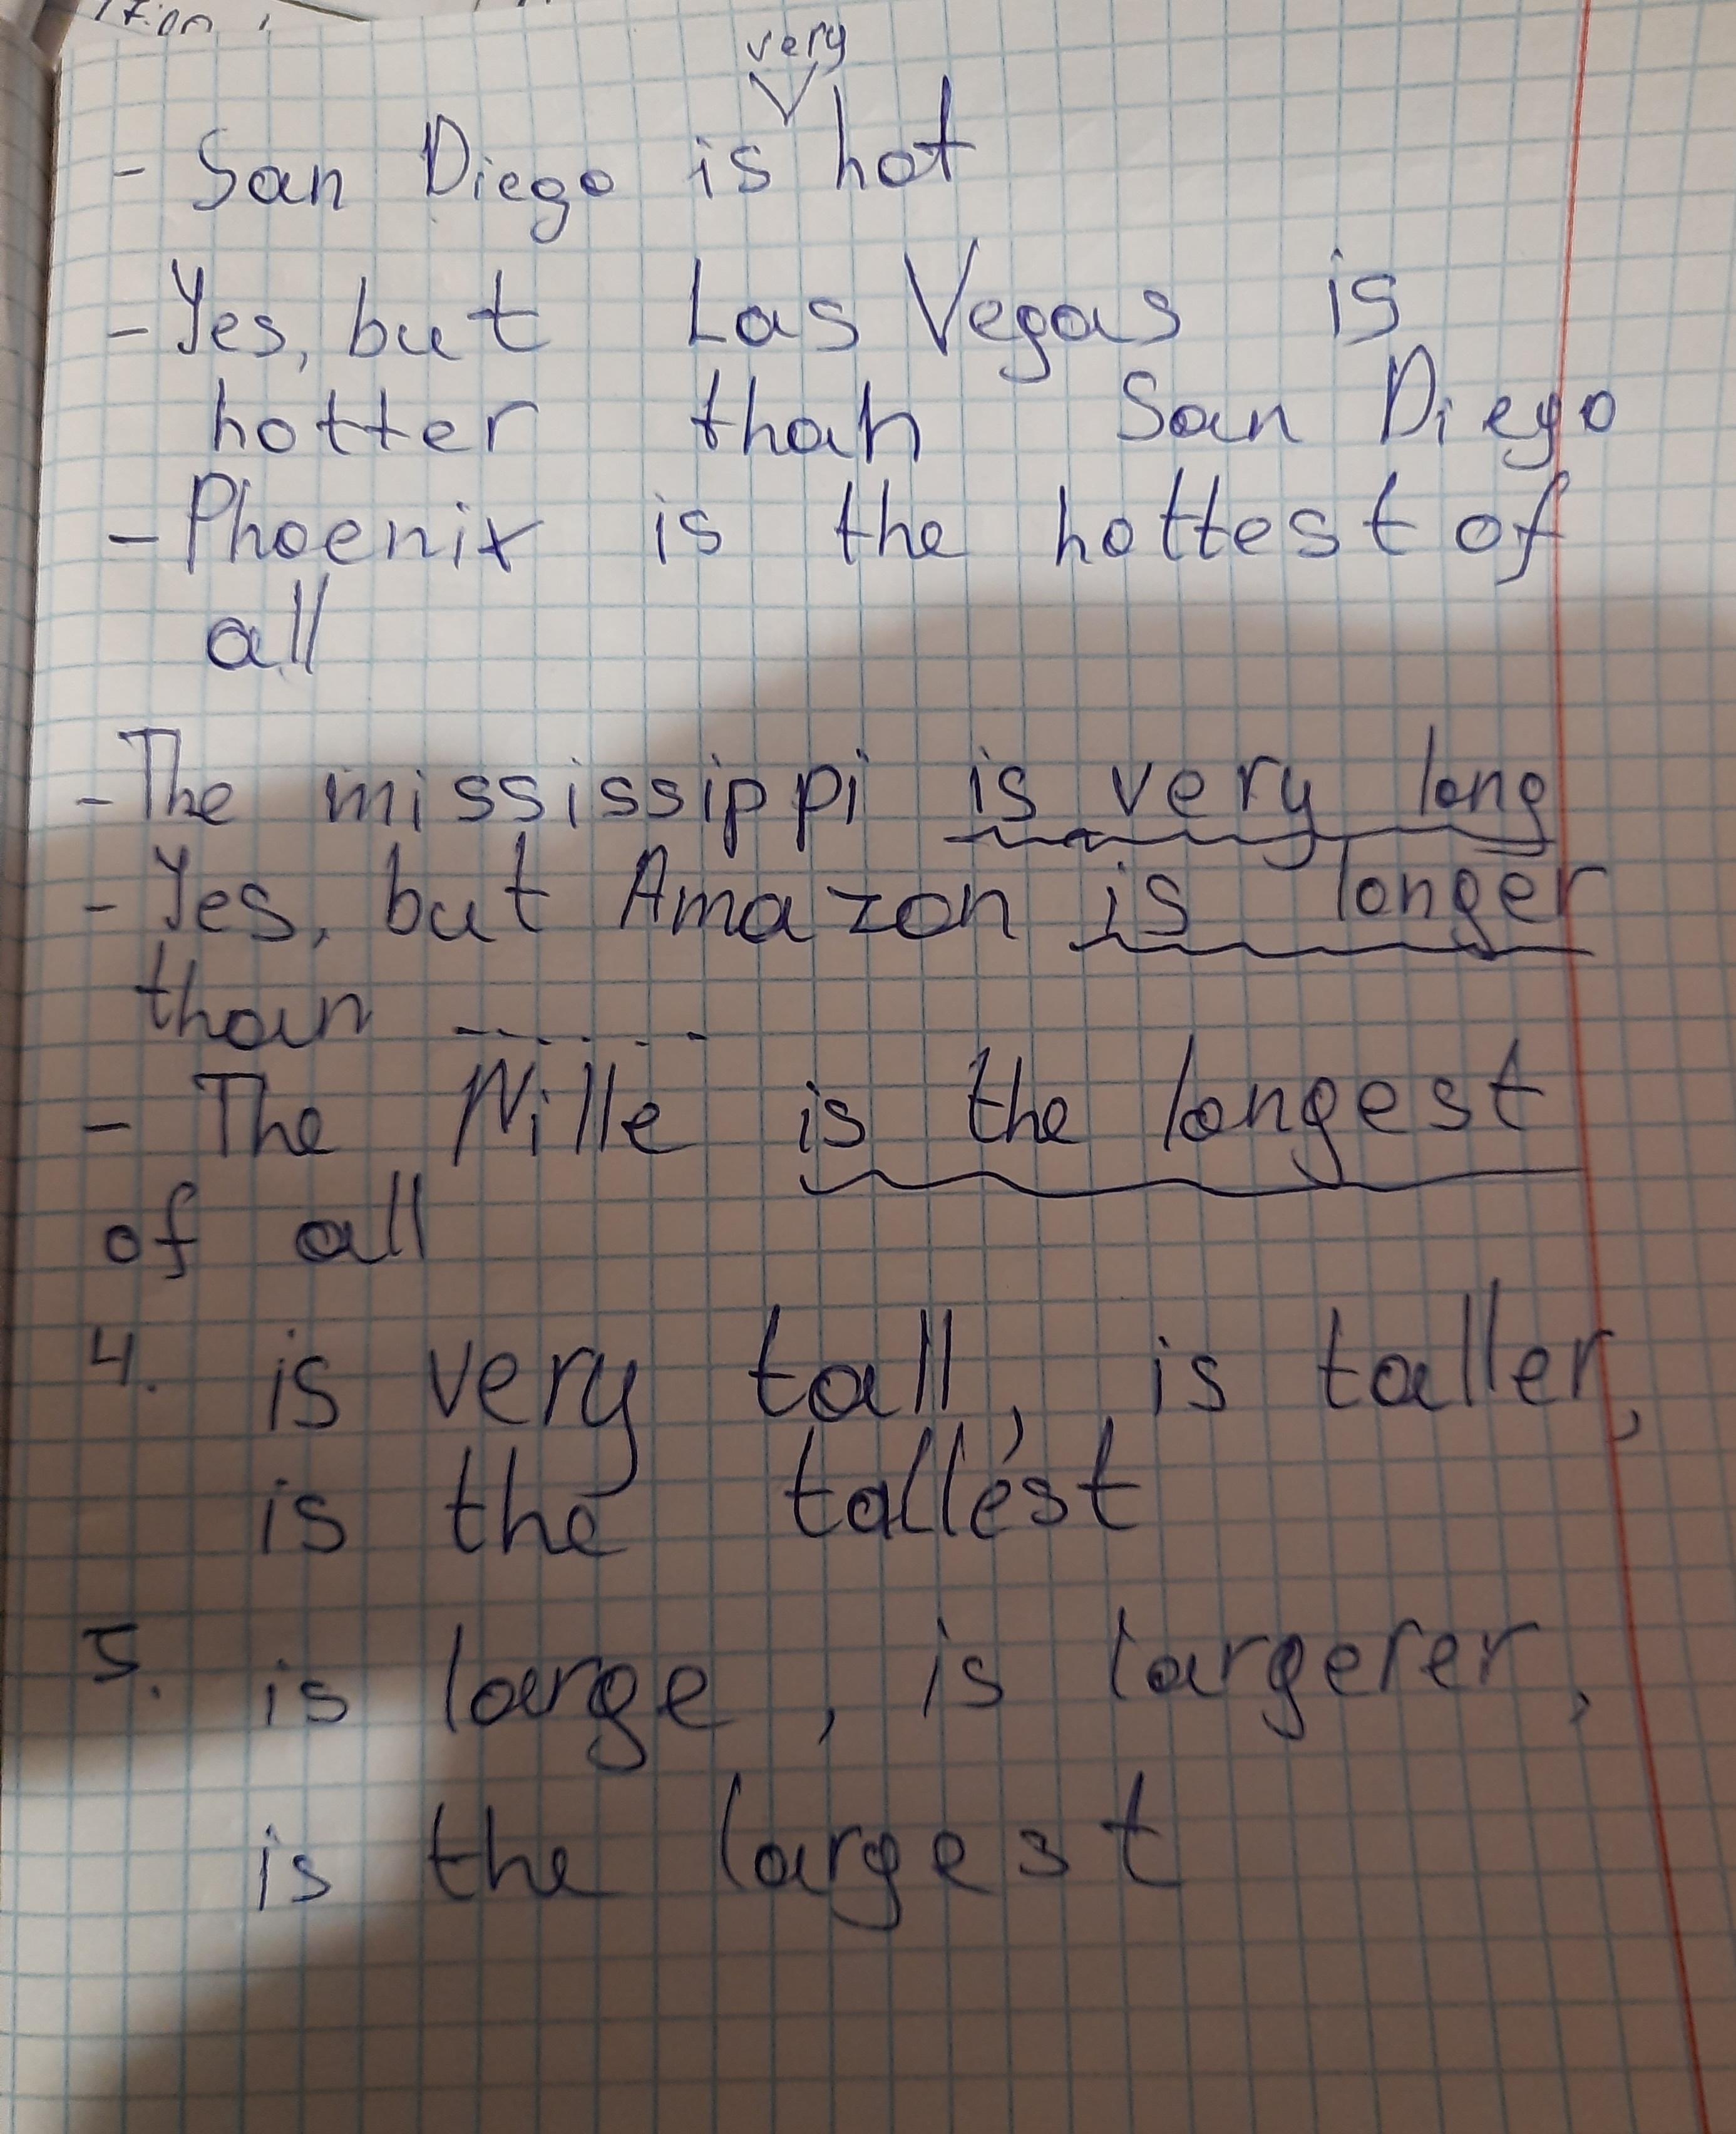 very
- San Diego is hot
- Yes, but Las Vegas is
hotter than San Diego
- Phoenix is the hottest of
all
- The mississippi is very long
- Yes, but Amazon is longer
than - . . . -
- The Nille is the longest
of all
4. is very tall, is taller,
is the tallest
5. is large, is largerer,
is the largest